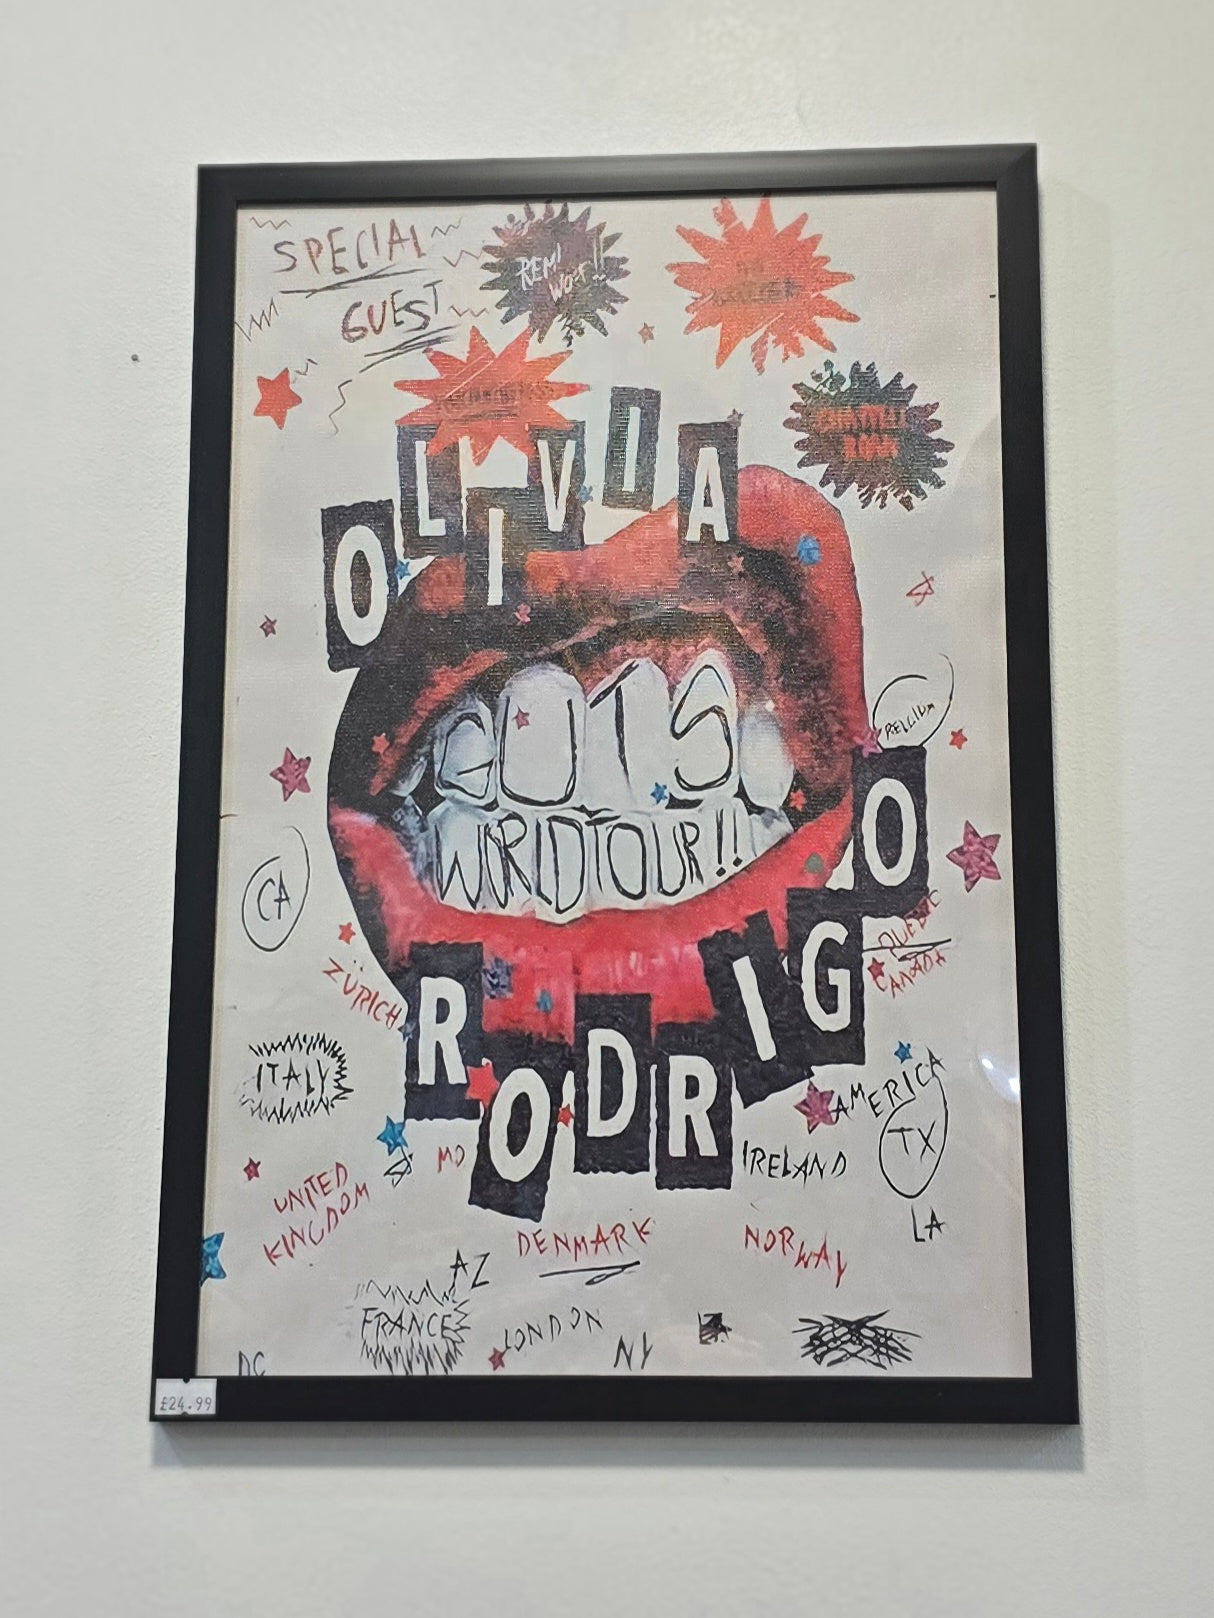 SPECIAL
GUEST
REMI
WOLF!!
OLIVIA
GUTS
WORLD TOUR!!
RODRIGO
BELGIUM
CA
QUEBEC
CANADA
ZÜRICH
ITALY
AMERICA
TX
MO
IRELAND
UNITED
KINGDOM
LA
DENMARK
NORWAY
AZ
FRANCE
LONDON
NY
DC
£24.99